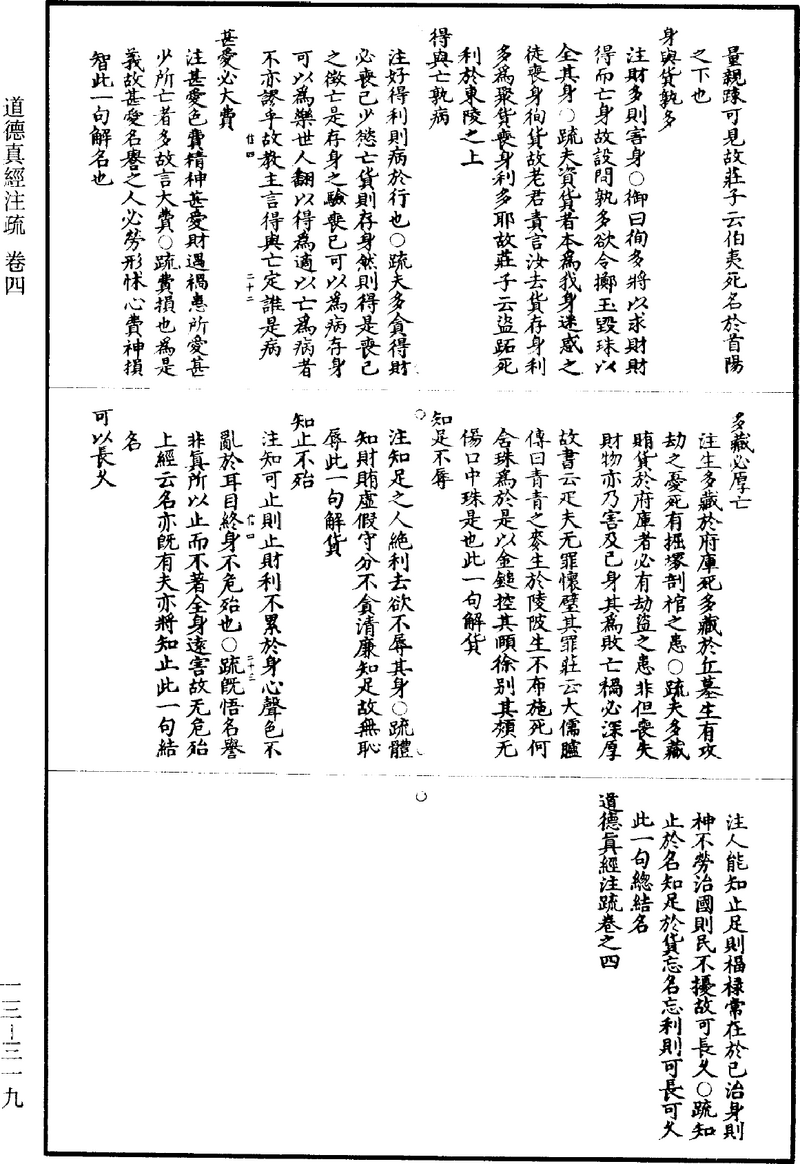 量親踈可見故莊子云伯夷死名於首陽
之下也
身與貨孰多
注財多則害身○御曰徇多將以求財財
得而亡身故設問孰多欲令擲玉毀珠以
全其身○疏夫資貨者本為我身迷惑之
徒喪身徇貨故老君責言汝去貨存身利
多為聚貨喪身利多耶故莊子云盜跖死
利於東陵之上
得與亡孰病
注好得利則病於行也○疏夫多貪得財
必喪己少慾亡貨則存身然則得是喪己
之徵亡是存身之驗喪己可以為病存身
可以為樂世人翻以得為適以亡為病者
不亦謬乎故教主言得與亡定誰是病
信四
二十二
甚愛必大費
注甚愛色費精神甚愛財遇禍患所愛甚
少所亡者多故言大費○疏費損也為是
義故甚愛名譽之人必勞形怵心費神損
智此一句解名也
多藏必厚亡
注生多藏於府庫死多藏於丘墓生有攻
劫之憂死有掘塚剖棺之患○疏夫多藏
賄貨於府庫者必有劫盜之患非但喪失
財物亦乃害及己身其為敗亡禍必深厚
故書云疋夫无罪懷璧其罪莊云大儒臚
傳曰青青之麥生於陵陂生不布施死何
含珠為於是以金鎚控其頤徐别其頰无
傷口中珠是也此一句解貨
知足不辱
注知足之人絶利去欲不辱其身○疏體
知財賄虚假守分不貪清廉知足故無恥
辱此一句解貨
知止不殆
注知可止則止財利不累於身心聲色不
亂於耳目終身不危殆也○疏旣悟名譽
信四
二十三
非眞所以止而不著全身遠害故无危殆
上經云名亦旣有夫亦將知止此一句結
名
可以長久
注人能知止足則福祿常在於己治身則
神不勞治國則民不擾故可長久○疏知
止於名知足於貨忘名忘利則可長可久
此一句總結名
道德眞經注疏卷之四
道德真經注疏 卷四
一三—三一九